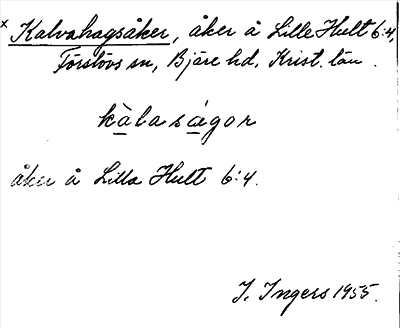 × Kalvahagsåker, åker å Lille Hult 6:4,
Förslövs sn, Bjäre hd, Krist. län.
kàlaságor
åker å Lilla Hult 6:4.
I. Ingers 1955.